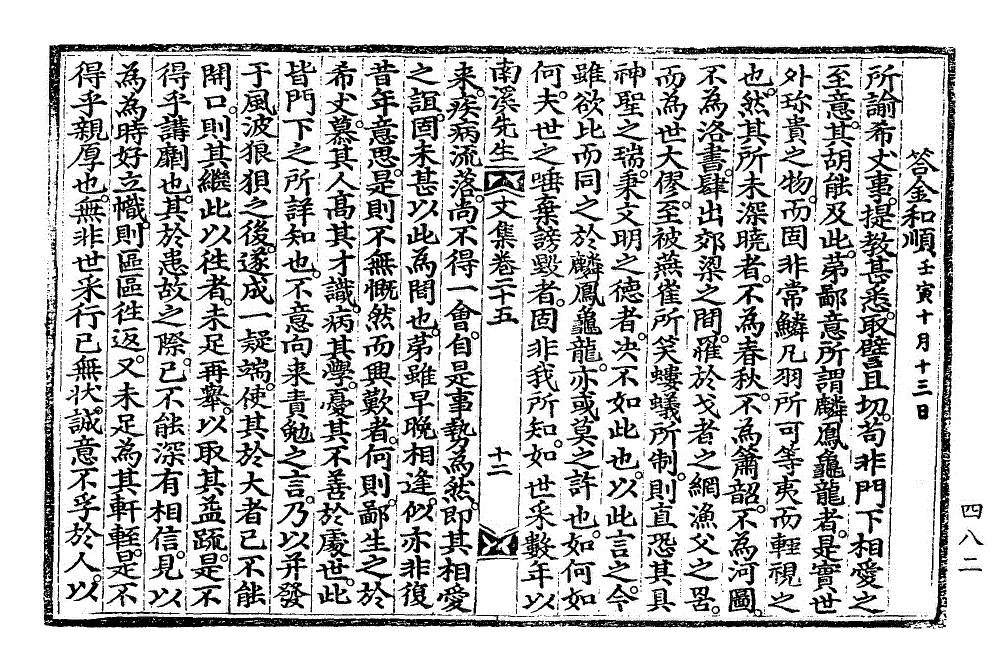 答金和順(壬寅十月十三日)
所諭希丈事。提教甚悉。取譬且切。苟非門下相愛之
至意。其胡能及此。第鄙意所謂麟鳳龜龍者。是實世
外珍貴之物。而固非常鱗凡羽所可等夷而輕視之
也。然其所未深曉者。不為春秋。不為簫韶。不為河圖。
不為洛書。肆出郊梁之間。罹於戈者之網漁父之罟。
而為世大僇。至被燕雀所笑螻蟻所制。則直恐其具
神聖之瑞。秉文明之德者。决不如此也。以此言之。今
雖欲比而同之於麟鳳龜龍。亦或莫之許也。如何如
何。夫世之唾棄謗毀者。固非我所知。如世采數年以
南溪先生文集卷二十五 十二
来。疾病流落。尚不得一會。自是事勢為然。即其相愛
之誼。固未甚以此為間也。第雖早晩相逢。似亦非復
昔年意思。是則不無慨然而興歎者。何則。鄙生之於
希丈。慕其人高其才識。病其學。憂其不善於處世。此
皆門下之所詳知也。不意向来責勉之言。乃以幷發
于風波狼狽之後。遂成一疑端。使其於大者已不能
開口。則其繼此以往者。未足再擧。以取其益䟽。是不
得乎講劘也。其於患故之際。已不能深有相信。見以
為為時好立幟。則區區往返。又未足為其軒輊。是不
得乎親厚也。無非世采行已無狀。誠意不孚於人。以
四八二